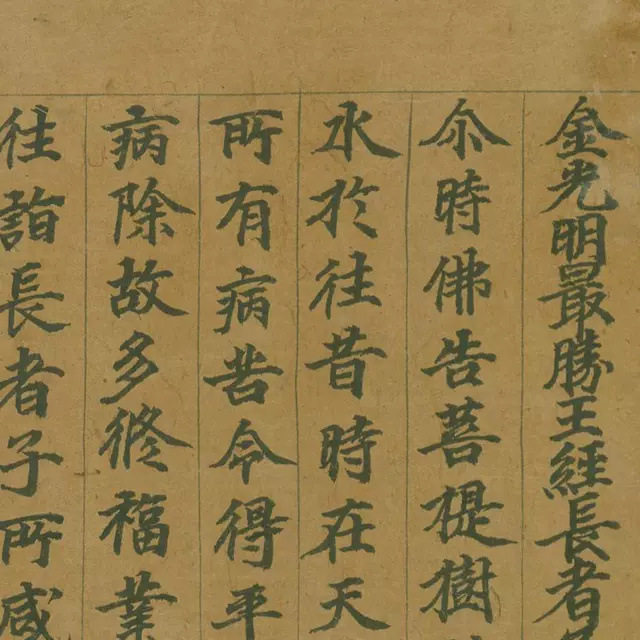 金光明最勝王經長者
尒時佛告菩提樹
水於往昔時在天
所有病苦令得平
病除故多修福業
往詣長者子所咸